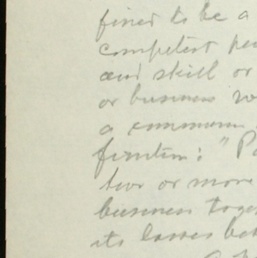 fined to be a
competent per
and skill or
or business w
a common
firution: "Pa
two or more
business toge
its losses bet